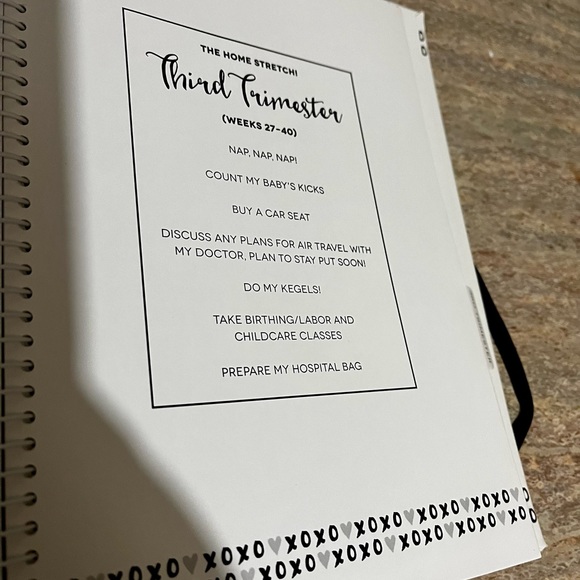 THE HOME STRETCH!
Third Trimester
(WEEKS 27-40)
NAP, NAP, NAP!
COUNT MY BABY'S KICKS
BUY A CAR SEAT
DISCUSS ANY PLANS FOR AIR TRAVEL WITH
MY DOCTOR, PLAN TO STAY PUT SOON!
DO MY KEGELS!
TAKE BIRTHING/LABOR AND
CHILDCARE CLASSES
PREPARE MY HOSPITAL BAG
XOXO♥XOXO♥XOXO♥XOXO♥XOXO♥
XOXO♥XOXO♥XOXO♥XOXO♥XO